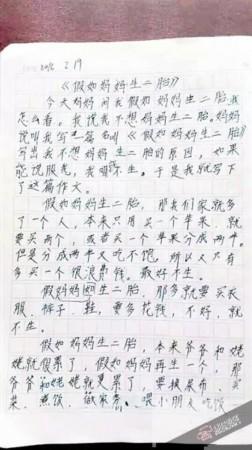 2016 2.19
《假如妈妈生二胎》
今天妈妈问我假如妈妈生二胎,我
怎么看。我说我不想妈妈生二胎。妈妈
说叫我写一篇名叫《假如妈妈生二胎》
写出我不想妈妈生二胎的原因,如果
能说服光,我就不生。于是我就写下
了这篇作文。
假如妈妈生二胎,那我们家就多
了一个人,本来只用买一个苹果,就
要买两个,或者买一个苹果分成两半,
但是分成两半又吃不饱,所以又只有
多买一个很浪费钱。最好不生。
假妈妈如生二胎,那多就要买衣
服、裤子、鞋,要多花钱,不好,就
不生。
假如妈妈生二胎,本来爷爷和姥
姥就够累了,假如妈妈再生一个,那
爷爷和姥姥就更累了,要换尿布、买
菜、煮饭、做家务、喂小朋友吃饭